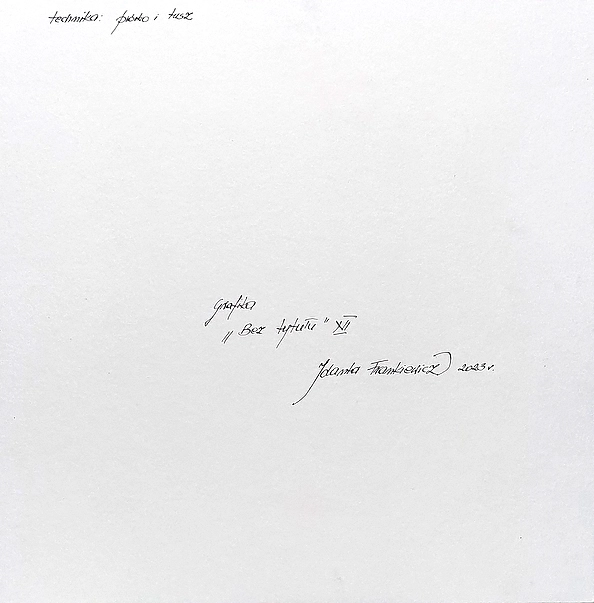 technika: piórko i tusz
Grafika
„Bez tytułu" XII
Idanka Frankiewicz 2023 r.